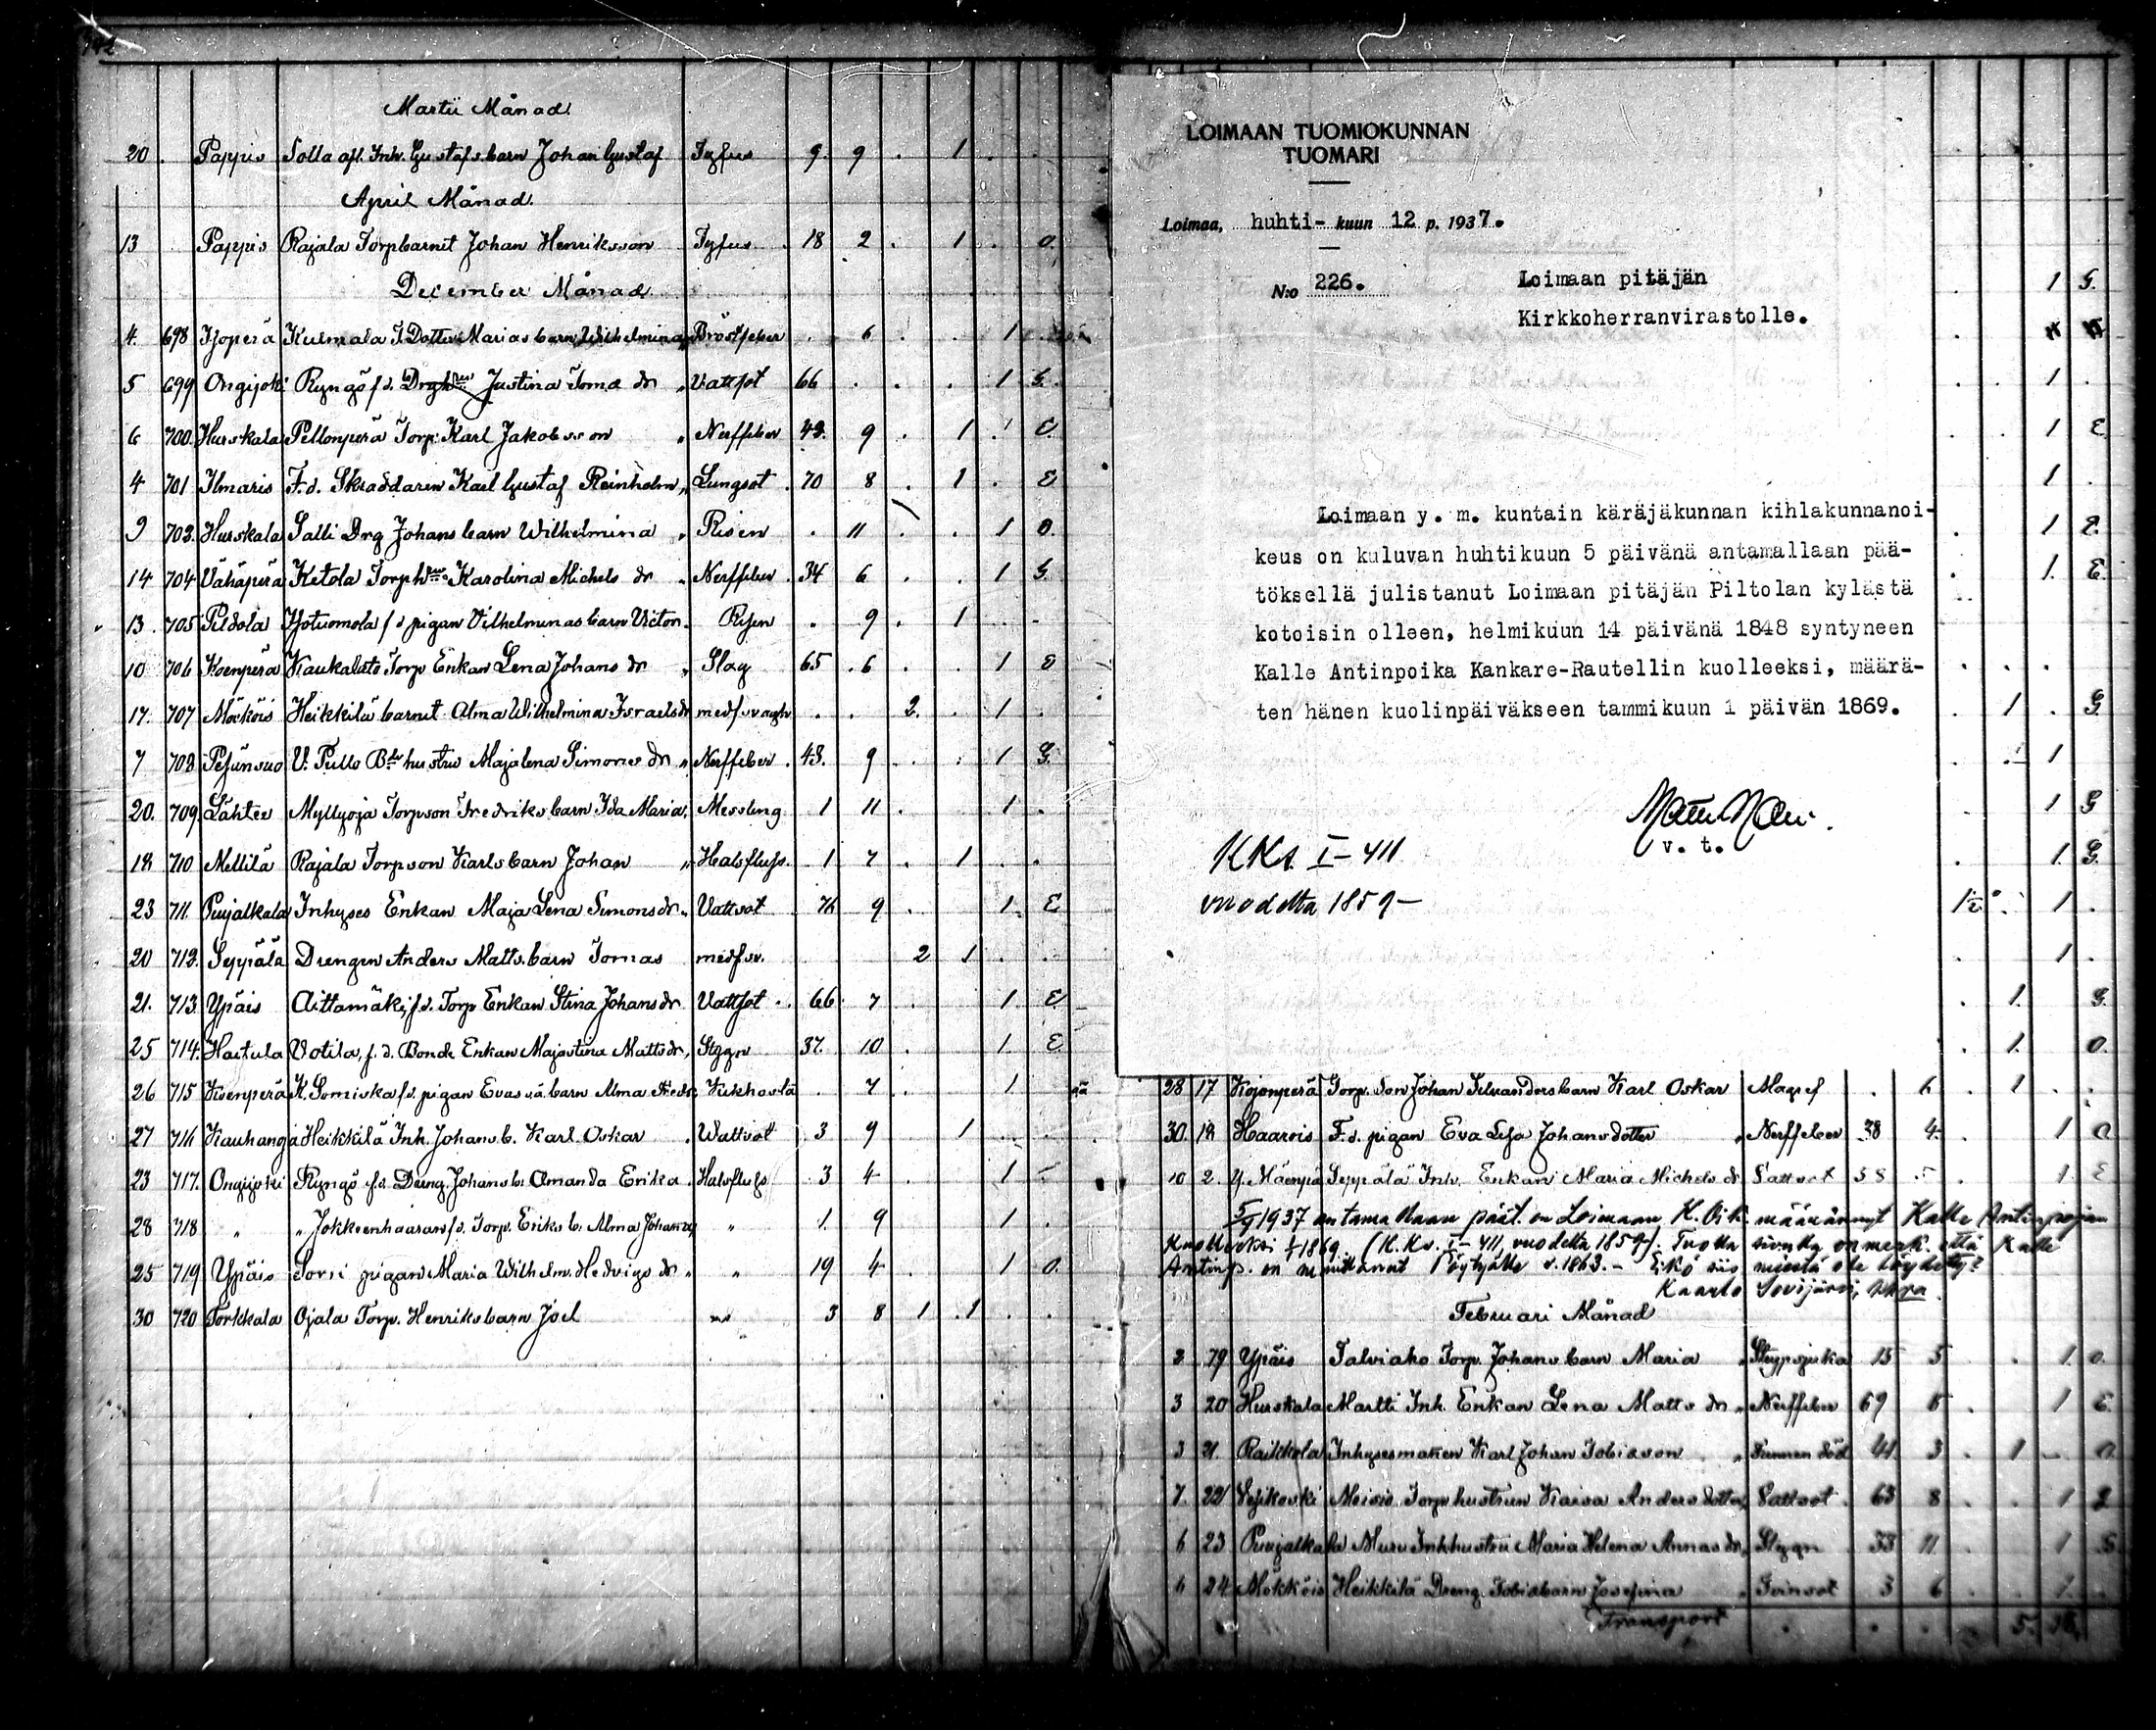 Martii Månad
20. Pappis Solla aft. Inh. Gustafs barn Johan Gustaf Tyfus 9. 9 . 1 .
April Månad.
13 Pappis Rajala Torpbarnet Johan Henriksson Tyfus . 18 2 . 1 . O.
December Månad
4. 698 Kulmala T. Dotter Marias barn Wilhelmina Bröstfeber . 6 . . 1
5 699 Ongijoki Ryngö f.d. Justina Toma dr " Vattsot 66 . . . 1 G.
6 700. Hurskala Pellonperä Torp. Karl Jakobsson " Nerffeber 43. 9 . 1 . E.
4 701 Ilmaris F.d. Skraddaren Karl Gustaf Reinholm " Lungsot . 70 8 . 1 . E
9 703. Hurskala Salli Drg Johans barn Wilhelmina " Risen . 11 . . 1 O.
14 704 Vähäperä Ketola Torph Karolina Michels dr " Nerffeber . 34 6 . . 1 G.
13. 705 Pildola f d pigan Vilhelminas barn Victor. Risen . 9 . 1 . .
10 706 Koenperä Kaukalato Torp Enkan Lena Johans dr " Slag 65 . 6 . . 1 E
17. 707 Mäkköis Heikkilä barnet Alma Wilhelmina Israelsdr medf. svagh. . . 2. . 1 .
7 708 V. Pullo hustru Majalena Simons dr " Nerffeber . 43. 9 . . 1 G.
20. 709. Lähtee Myllyoja Torpson Fredriks barn Ida Maria. Messling 1 11 . . 1 .
18 710 Mellilä Rajala Torpson Karls barn Johan " Halsfluss. 1 7 . 1 . .
23 711. Puujalkala Inhyses Enkan Maja Lena Simonsdr. Vattsot . 76 9 . 1. E
20 712. Seppälä Drengen Anders Matts. barn Tomas medf. sv. 2 1 . .
21. 713. Ypäis Aittamäki f.d. Torp Enkan Stina Johansdr Vattsot . 66 7 . 1. E
25 714. Haitula Votila, f.d. Bonde Enkan Majastina Mattsdr, Styggn 37. 10 . 1. E
26 715 Koenperä K. Somiska f.d. pigan Evas oä. barn Alma Kikhosta . 7 . . 1. oä
27 716 Kauhanoja Heikkilä Inh. Johans b. Karl. Oskar . Wattsot . 3 9 1 . .
23 717. Ongijoki Ryngö f.d. Dreng. Johans b. Amanda Erika . Halsfluss . 3 4 . 1 .
28 718 " " Jokkeenhaaran f.d. Torp. Eriks b. Alma Johanna " 1. 9 1 .
25 719 Ypäis Sorri pigan Maria Wilhelm. Hedvigs dr " " 19 4 . . 1 O.
30 720 Torkkala Ojala Torp. Henriks barn Joel " 3 8 1 . 1 . .
LOIMAAN TUOMIOKUNNAN
TUOMARI
Loimaa, huhti- kuun 12 p. 1937.
N:o 226.
Loimaan pitäjän
Kirkkoherranvirastolle.
Loimaan y. m. kuntain käräjäkunnan kihlakunnanoi-
keus on kuluvan huhtikuun 5 päivänä antamallaan pää-
töksellä julistanut Loimaan pitäjän Piltolan kylästä
kotoisin olleen, helmikuun 14 päivänä 1848 syntyneen
Kalle Antinpoika Kankare-Rautellin kuolleeksi, määrä-
ten hänen kuolinpäiväkseen tammikuun 1 päivän 1869.
v. t.
KKs. I-411
vuodetta 1859-
28 17 Kojonperä Torp. son Johan barn Karl Oskar . 6 . 1 . .
30. 18 Haarois F.d. pigan Eva Lisa Johansdotter " Nerffeber 38 4. . 1 O
10 2. Y. Mäenpä Seppälä Inh. Enkan Maria Michels dr Vattsot 58 . 1 E
1937 antamallaan päät. on Loimaan K. Oik. määrännyt Kalle Antinpojan
kuolleeksi 1/1 1869. (K.Ks. I-411, vuodetta 1859). Tuolla sivulla on merk. että Kalle
Antinp. on muuttanut Pöytyälle v. 1863. - Eikö siis miestä ole löydetty?
Kaarlo Sovijärvi,
Februari Månad
2 19 Ypäis Salviaho Torp. Johans barn Maria " Strypsjuka 15 5 . 1. O.
3 20 Hurskala Martti Inh. Enkan Lena Matts dr " Nerffeber 69 . 1 E.
3 21. Raikkola Inhysesmannen Karl Johan Tobiasson " 41 3 . 1 O
7. 22 Torphustrun Kaisa Anders dotter, Vattsot . 63 8 . . 1
6 23 Puujalkala Muru Inhhustru Maria Helena Annas dr, Styggn 33 11. 1
6 24 Mäkköis Heikkilä Dreng. Tobias barn Josefina " 3 6 . . 1.
Transport . . . 5.